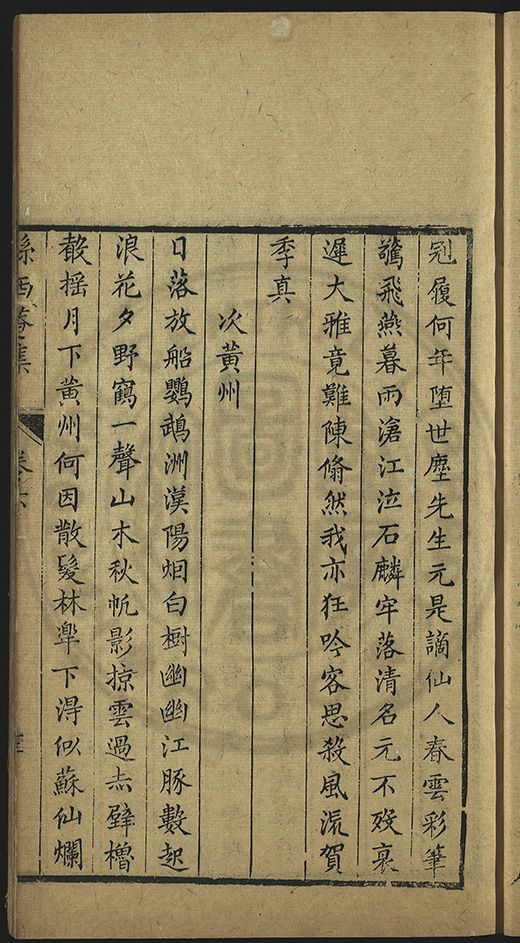 冠履何年堕世塵先生元是謫仙人春雲彩筆
驚飛燕暮雨滄江泣石麟牢落清名元不殁衰
遲大雅竟難陳翛然我亦狂吟客思殺風流賀
季真
次黄州
日落放船鸚鵡洲漢陽烟白樹幽幽江豚數起
浪花夕野鶴一聲山木秋帆影掠雲過赤壁櫓
聲摇月下黄州何因散髮林臯下得似蘇仙爛
孫西菴集